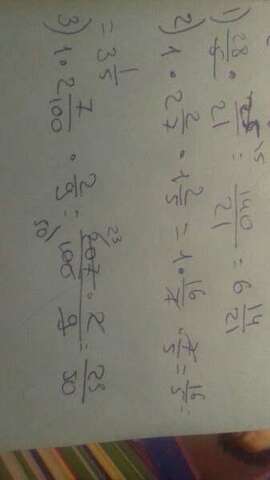 1) 28/5 · /21 = 140/21 = 6 14/21
2) 1 · 2 2/7 · 1 2/5 = 1 · 16/7 · 7/5 = 16/5 =
= 3 1/5
3) 1 · 2 7/100 · 2/9 = 207 · 2/100 · 9 = 23/50